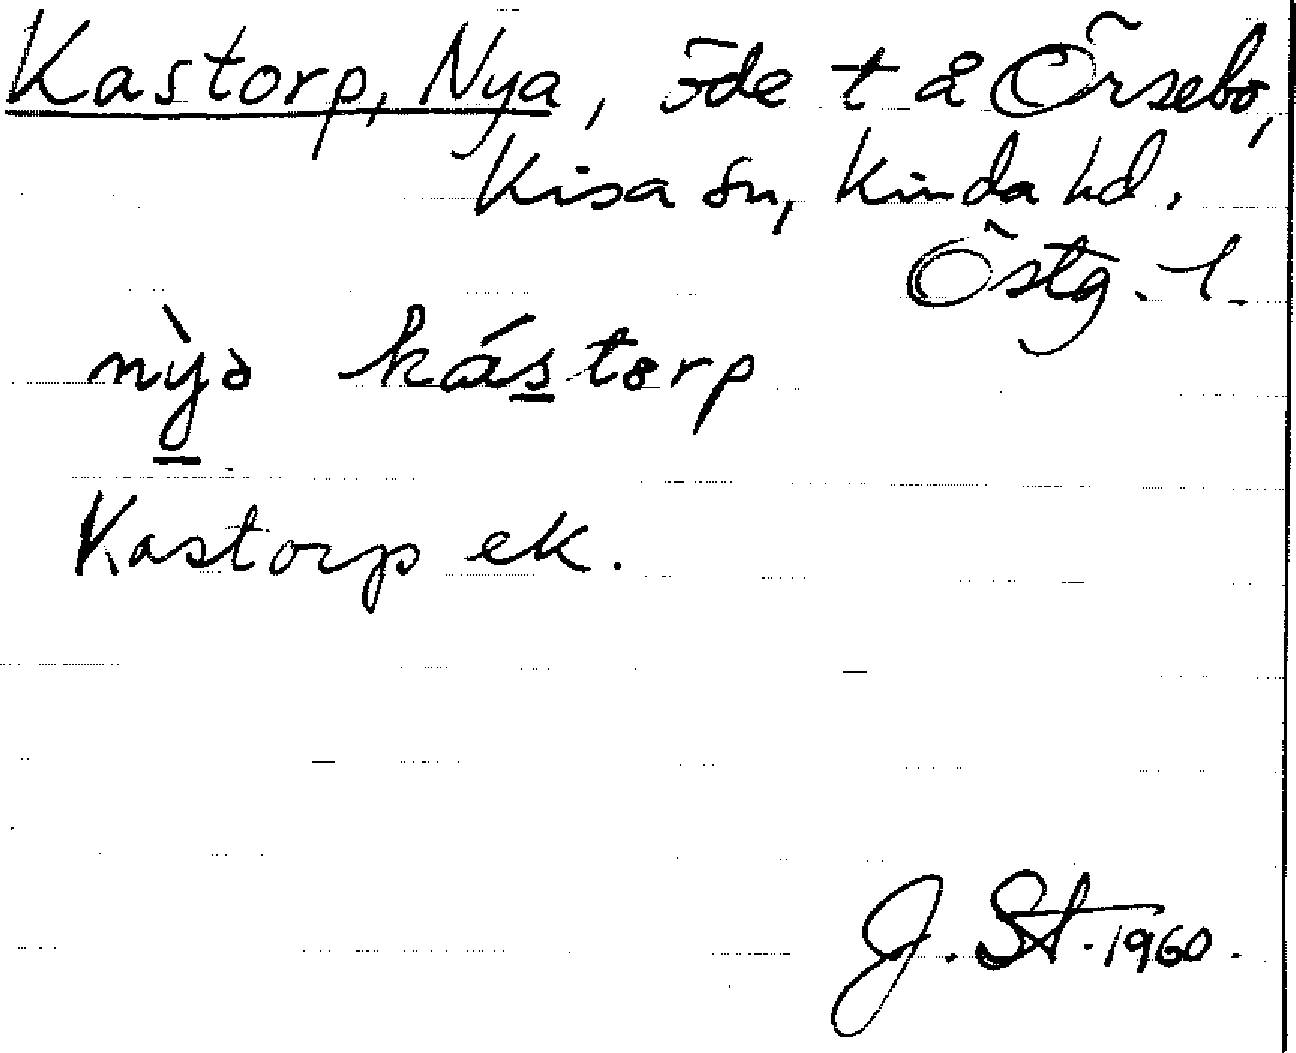 Kastorp, Nya, öde t å Örsebo,
Kisa sn, Kinda hd.
Östg. l.
nỳə kástorp
Kastorp ek.
J. St. 1960.